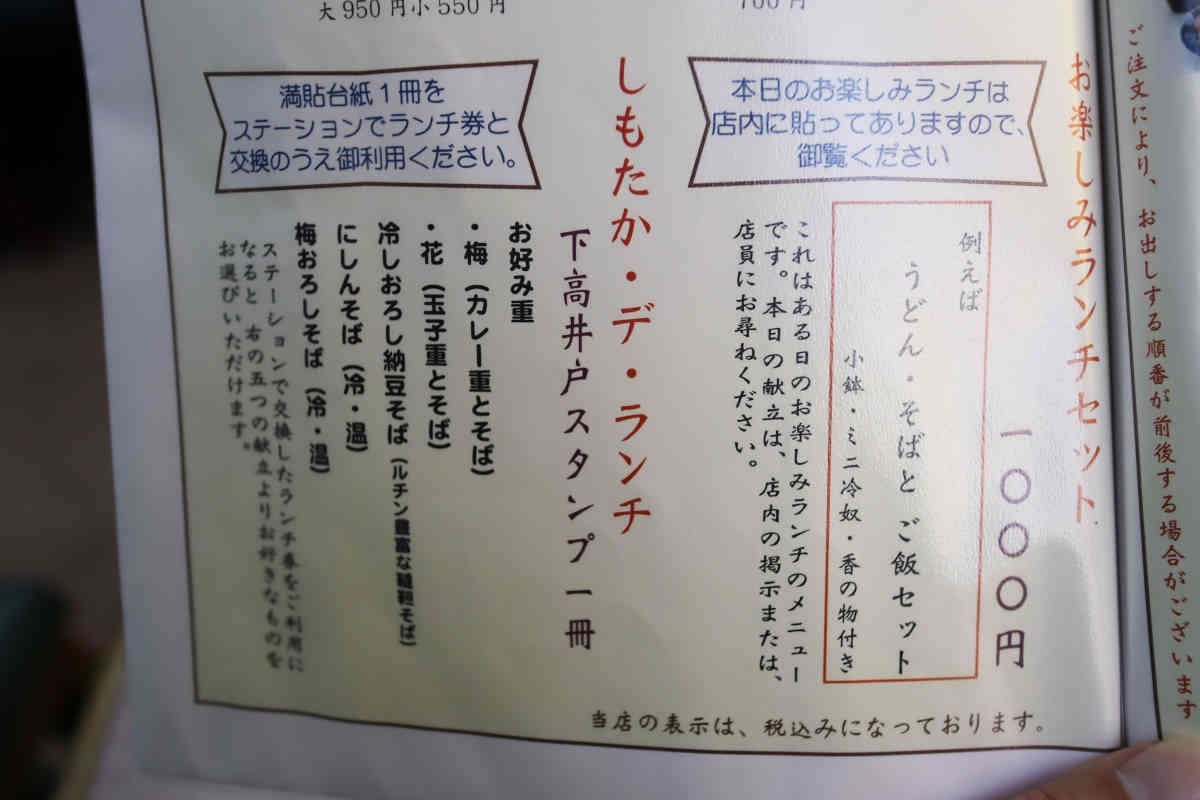 大950円小550円
700円
ご注文により、お出しする順番が前後する場合がございます
お楽しみランチセット
一〇〇〇円
本日のお楽しみランチは
店内に貼ってありますので、
御覧ください
例えば
うどん・そばと ご飯セット
小鉢・ミニ冷奴・香の物付き
これはある日のお楽しみランチのメニュー
です。本日の献立は、店内の掲示または、
店員にお尋ねください。
しもたか・デ・ランチ
下高井戸スタンプ一冊
満貼台紙1冊を
ステーションでランチ券と
交換のうえ御利用ください。
お好み重
・梅（カレー重とそば）
・花（玉子重とそば）
冷しおろし納豆そば（ルチン豊富な韃靼そば）
にしんそば（冷・温）
梅おろしそば（冷・温）
ステーションで交換したランチ券をご利用に
なると 右の五つの献立よりお好きなものを
お選びいただけます。
当店の表示は、税込みになっております。